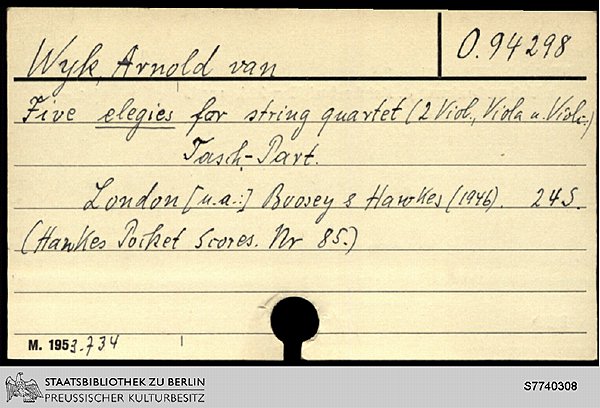 Wyk, Arnold van
O. 94298
Five elegies for string quartet (2 Viol., Viola u. Violc.)
Tasch.-Part.
London [u.a.:] Boosey & Hawkes (1946). 24 S.
(Hawkes Pocket Scores. Nr 85.)
M. 1953.734
STAATSBIBLIOTHEK ZU BERLIN
PREUSSISCHER KULTURBESITZ
S7740308